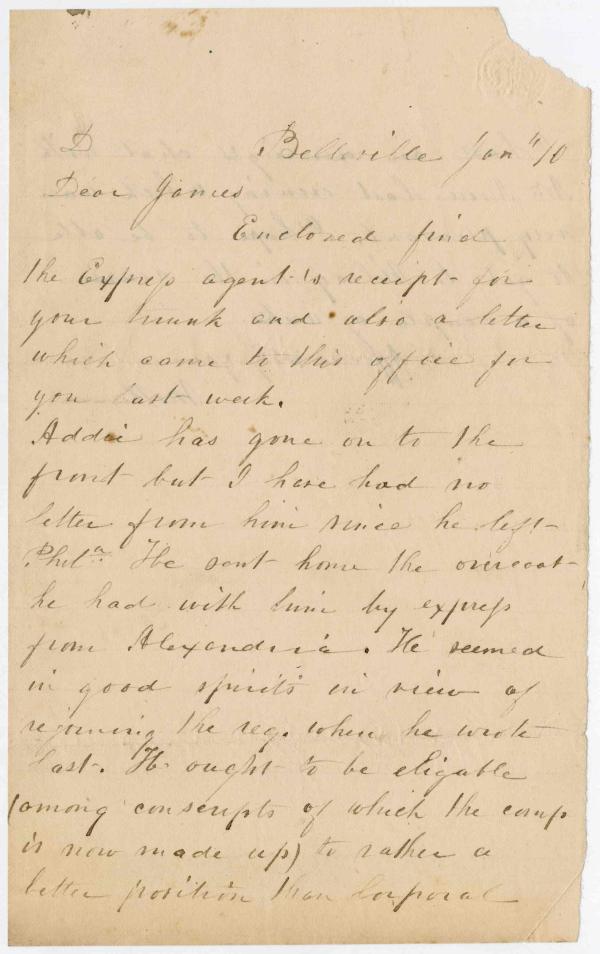 D Belleville Jan" 10
Dear James
Enclosed find
the Express agent's receipt for
your trunk and also a letter
which came to this office for
you last week.
Addie has gone on to the
front but I have had no
letter from him since he left
Phila. He sent home the overcoat
he had with him by express
from Alexandria. He seemed
in good spirits in view of
rejoining the reg. when he wrote
last. He ought to be eligable
(among conscripts of which the comp
is now made up) to rather a
better position than Corporal